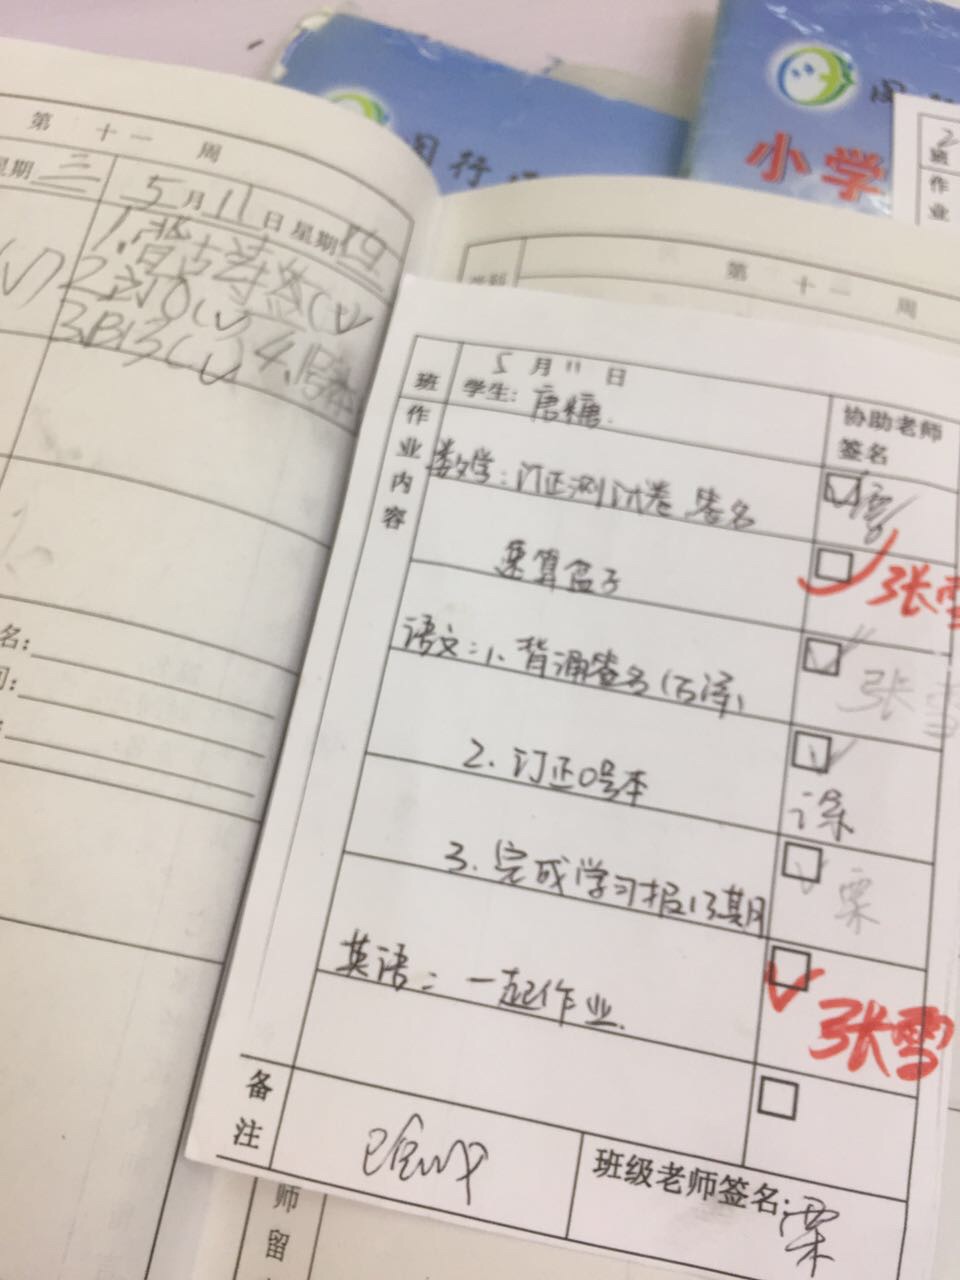 小学
班
作
业
第 十一 周
星期 三
5月11日 星期四
1.背古诗签(√)
2.订0(√)
3.B13(√) 4.
第 十一 周
5月11日
班 学生：唐糖.
协助老师
签名
作业内容
数学：订正测试卷 签名
速算盒子
张雪
语文：1、背诵签名(古诗)
张雪
2. 订正0号本
涂
3. 完成学习报13期
栗
英语：一起作业.
张雪
备注
已完成
班级老师签名：栗
名：
间：
师
留